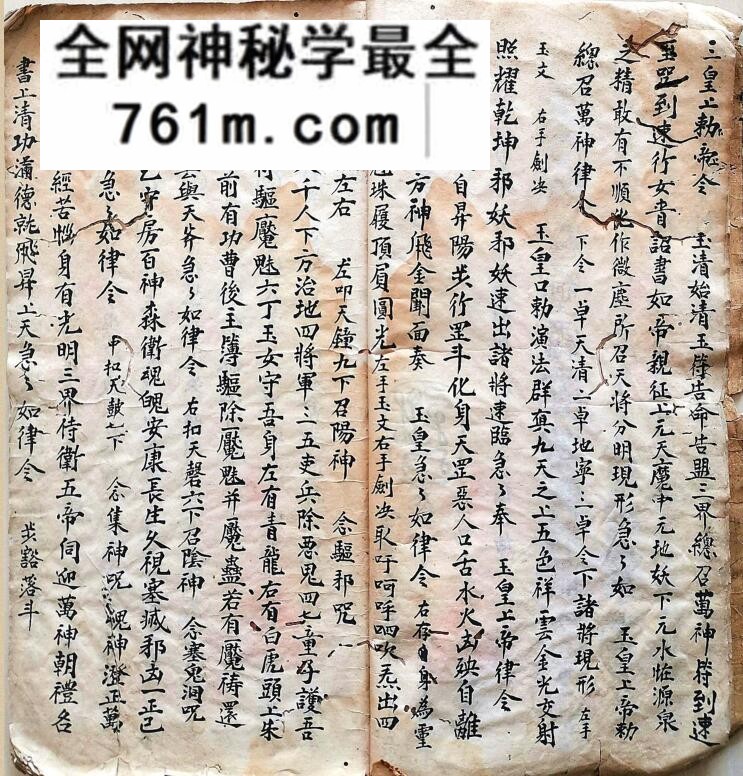 全网神秘学最全
761m.com
三皇上勅令 玉清始清玉簿告命告盟三界總召萬神符到速
罡到速行女青詔書如帝親征上元天魔中元地妖下元水怪源泉
之精敢有不順化作微塵所召天將分明現形急〻如 玉皇上帝勅
總召萬神律令 下令一卓天清二卓地寧三卓令下諸將現形 左手
玉文 右手劍决 玉皇口勅演法群真九天之上五色祥雲金光交射
照耀乾坤邪妖邪妖速出諸將速臨急〻奉 玉皇上帝律令
自昇陽步行罡斗化身天罡惡人口舌水火凶殃自離
方神飛金闕面奏 玉皇急〻如律令 右存身為靈
珠履頂負圓光左手玉文右手劍决取呼呵呼呬吹炁出四
左右 左叩天鐘九下召陽神 念驅邪咒
千人下二方治地四將軍三五吏兵除惡鬼四七童子護吾
驅魘魅六丁玉女守吾身左有青龍右有白虎頭上朱
前有功曹後主簿驅除魘魅并魘蠱若有魘禱還
與天齐急〻如律令 右扣天磬六下召陰神 念塞鬼洞咒
守房百神森衛魂魄安康長生久視塞滅邪凶一正已
急〻如律令 中扣天皷七下 念集神咒 魂神澄正萬
經苦惱身有光明三界侍衛五帝伺迎萬神朝禮名
書上清功滿德就飛昇上天急〻如律令 步豁落斗